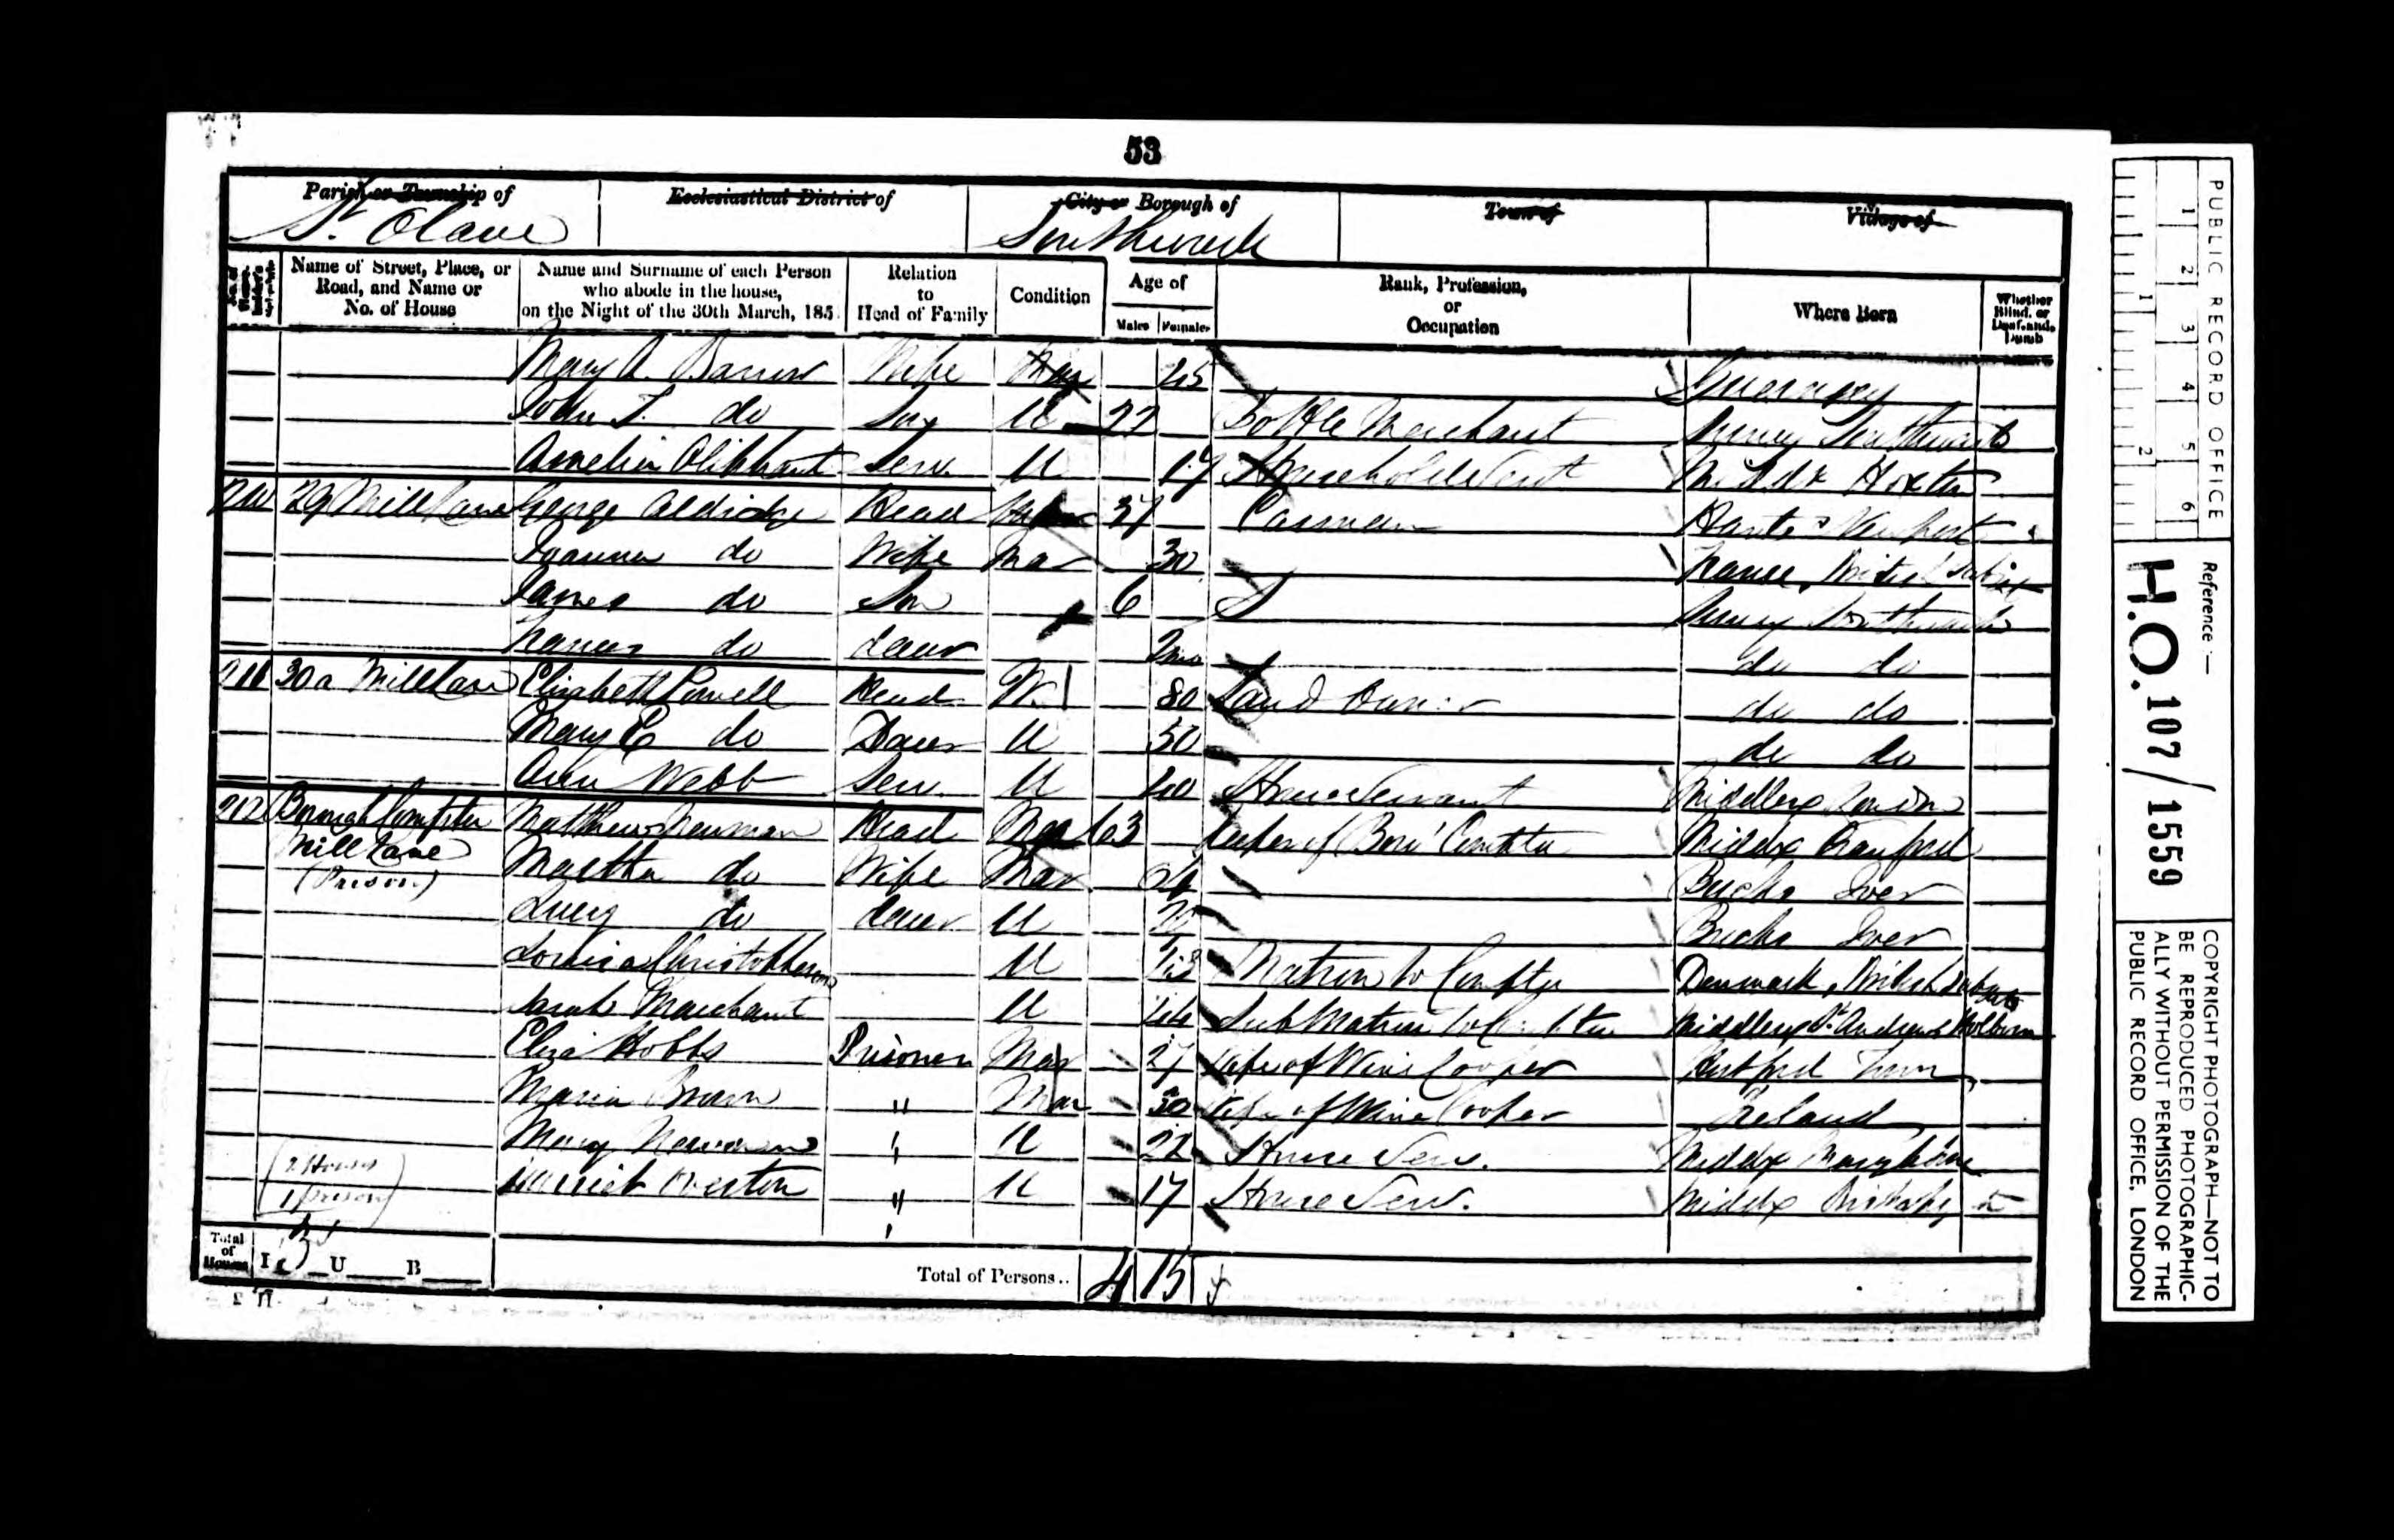 53
Parish or Township of
Ecclesiastical District of
City or Borough of
Town of
Village of
St. Olave
Southwark
Name of Street, Place, or Road, and Name or No. of House
Name and Surname of each Person who abode in the house, on the Night of the 30th March, 185
Relation to Head of Family
Condition
Age of
Males Females
Rank, Profession, or Occupation
Where Born
Whether Blind, or Deaf-and-Dumb
Mary A. Wife Mar 45 Guernsey
John T. do Son U 22 Bottle Merchant Surrey Southwark
Amelia Oliphant Serv. U 17 Household Servt Middx Hoxton
29 Mill Lane George Aldridge Head Mar 37 Carman Hants
Joanna do Wife Mar 30 France, British Subject
James do Son 6 Surrey Southwark
Frances do daur 2mo do do
211 30a Mill Lane Elizabeth Powell Head W. 80 Land Owner do do
Mary E do Daur U 50 do do
Ann Webb Serv. U 40 House Servant Middlesex
212 Borough Compter Matthew Newman Head Mar 63 Keeper of Boro' Compter Middx Cranford
Mill Lane
Martha do Wife Mar Bucks Iver
(Prison)
Lucy do daur U Bucks Iver
Louisa Christopherson U Matron to Compter Denmark, British Subject
Sarah Marchant U 44 Sub Matron to Compter Middlesex St. Andrews Holborn
Eliza Hobbs Prisoner Mar 27 Wife of Wine Cooper
Maria Brown " Mar 30 Wife of Wine Cooper Ireland
Mary Newman " U 22 House Serv. Middx Marylebone
Harriet Overton " U 17 House Serv. Middx
(2 Houses
1 Prison)
Total of Houses I 3 U B
Total of Persons.. 4 15
PUBLIC RECORD OFFICE
1 2 3 4 5 6
1 2
Reference :—
H.O. 107/1559
COPYRIGHT PHOTOGRAPH—NOT TO
BE REPRODUCED PHOTOGRAPHIC-
ALLY WITHOUT PERMISSION OF THE
PUBLIC RECORD OFFICE, LONDON